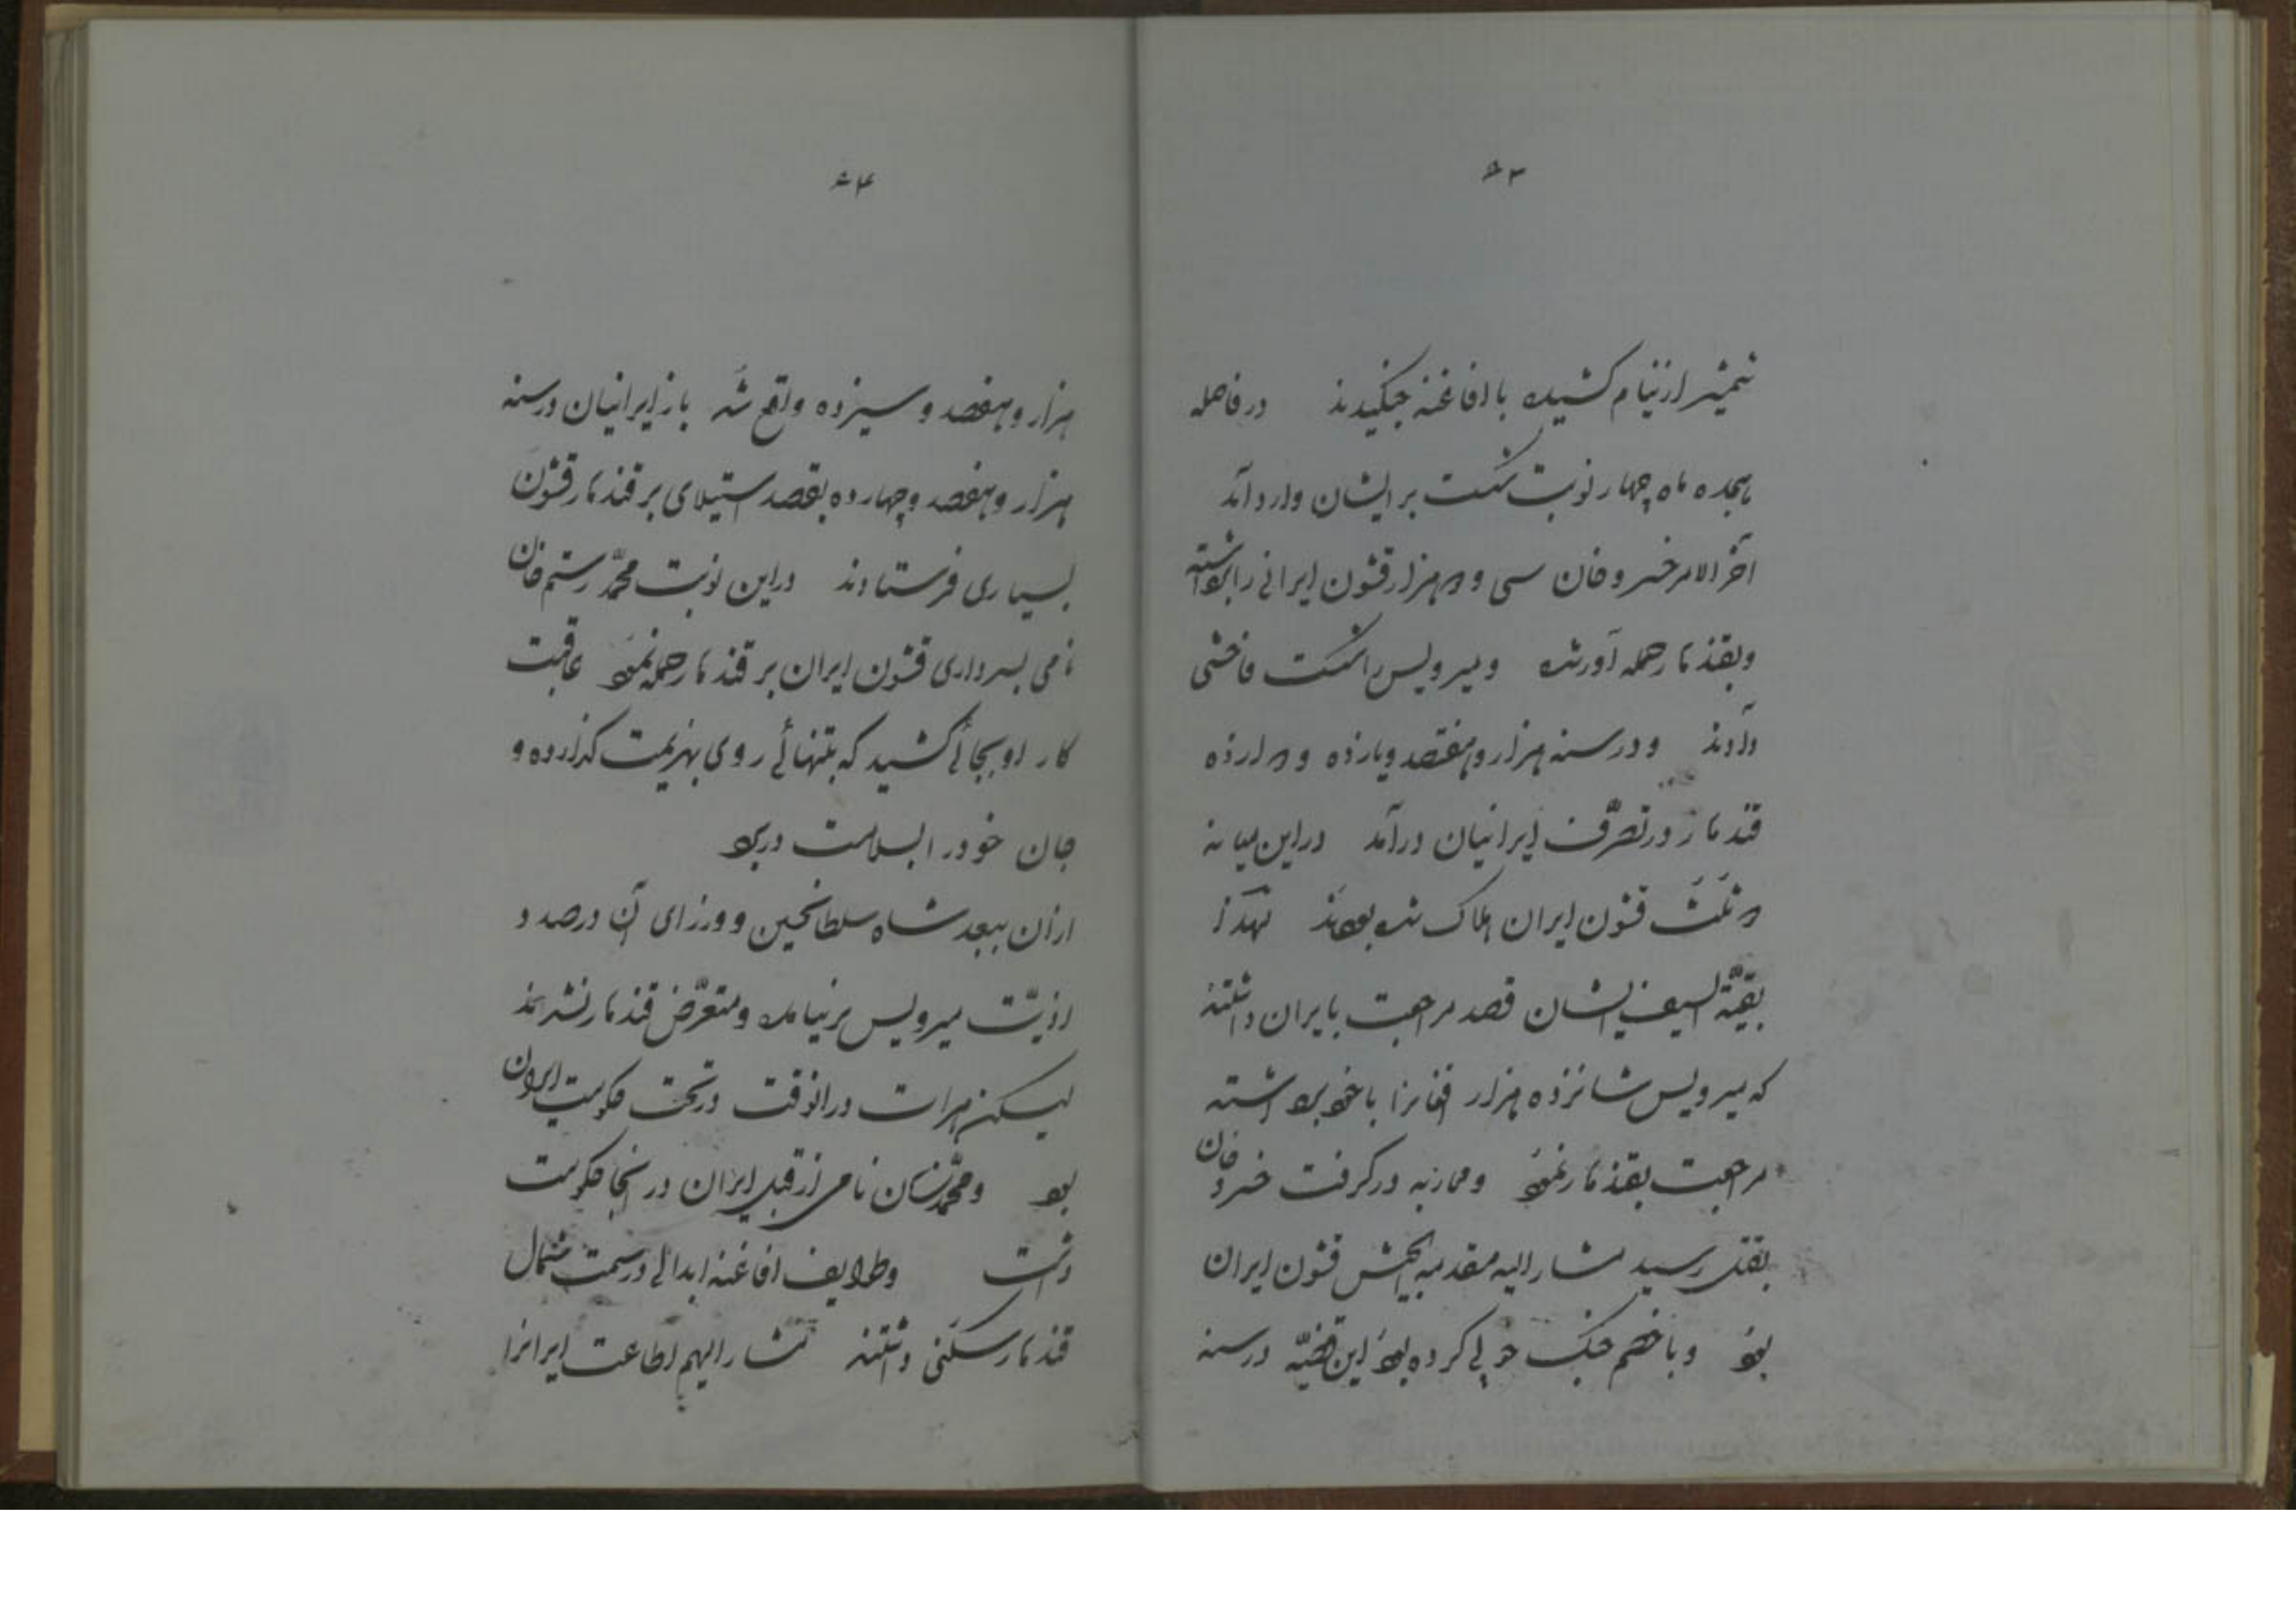 ۶۳
شمشیر از نیام کشیده با افاغنه جنگیدند در فاصله
هیجده ماه چهار نوبت شکست بر ایشان وارد آمد
آخر الامر خسرو خان سی و دو هزار قشون ایرانی را برداشته
و بقندهار حمله آور شد و میرویس را شکست فاحشی
دادند و در سنه هزار و هفتصد و یازده و دوازده
قندهار در تصرّف ایرانیان درآمد در این میانه
دو ثلث قشون ایران هلاک شده بودند لهذا
بقیّة السیف ایشان قصد مراجعت بایران داشتند
که میرویس شانزده هزار افغانرا با خود برداشته
مراجعت بقندهار نمود و محاربه در گرفت خسرو خان
بقتل رسید مشار الیه مقدمه الجیش قشون ایران
بود و با خصم جنگ خوبی کرده بود این قضیّه در سنه
۶۴
هزار و هفصد و سیزده واقع شد باز ایرانیان در سنه
هزار و هفصد و چهارده بقصد استیلای بر قندهار قشون
بسیاری فرستادند در این نوبت محمّد رستم خان
نامی بسرداری قشون ایران بر قندهار حمله نمود عاقبت
کار او بجائی کشید که بتنهائی روی بهزیمت گذارده و
جان خود را بسلامت در برد
از آن ببعد شاه سلطانحسین و وزرای آن در صدد
اذیّت میرویس بر نیامده و متعرّض قندهار نشدند
لیکن هرات در آنوقت در تحت حکومت ایران
بود و محمّد زمان نامی از قبل ایران در آنجا حکومت
داشت و طوایف افاغنه ابدالی در سمت شمال
قندهار سکنی داشتند مشار الیهم اطاعت ایرانرا